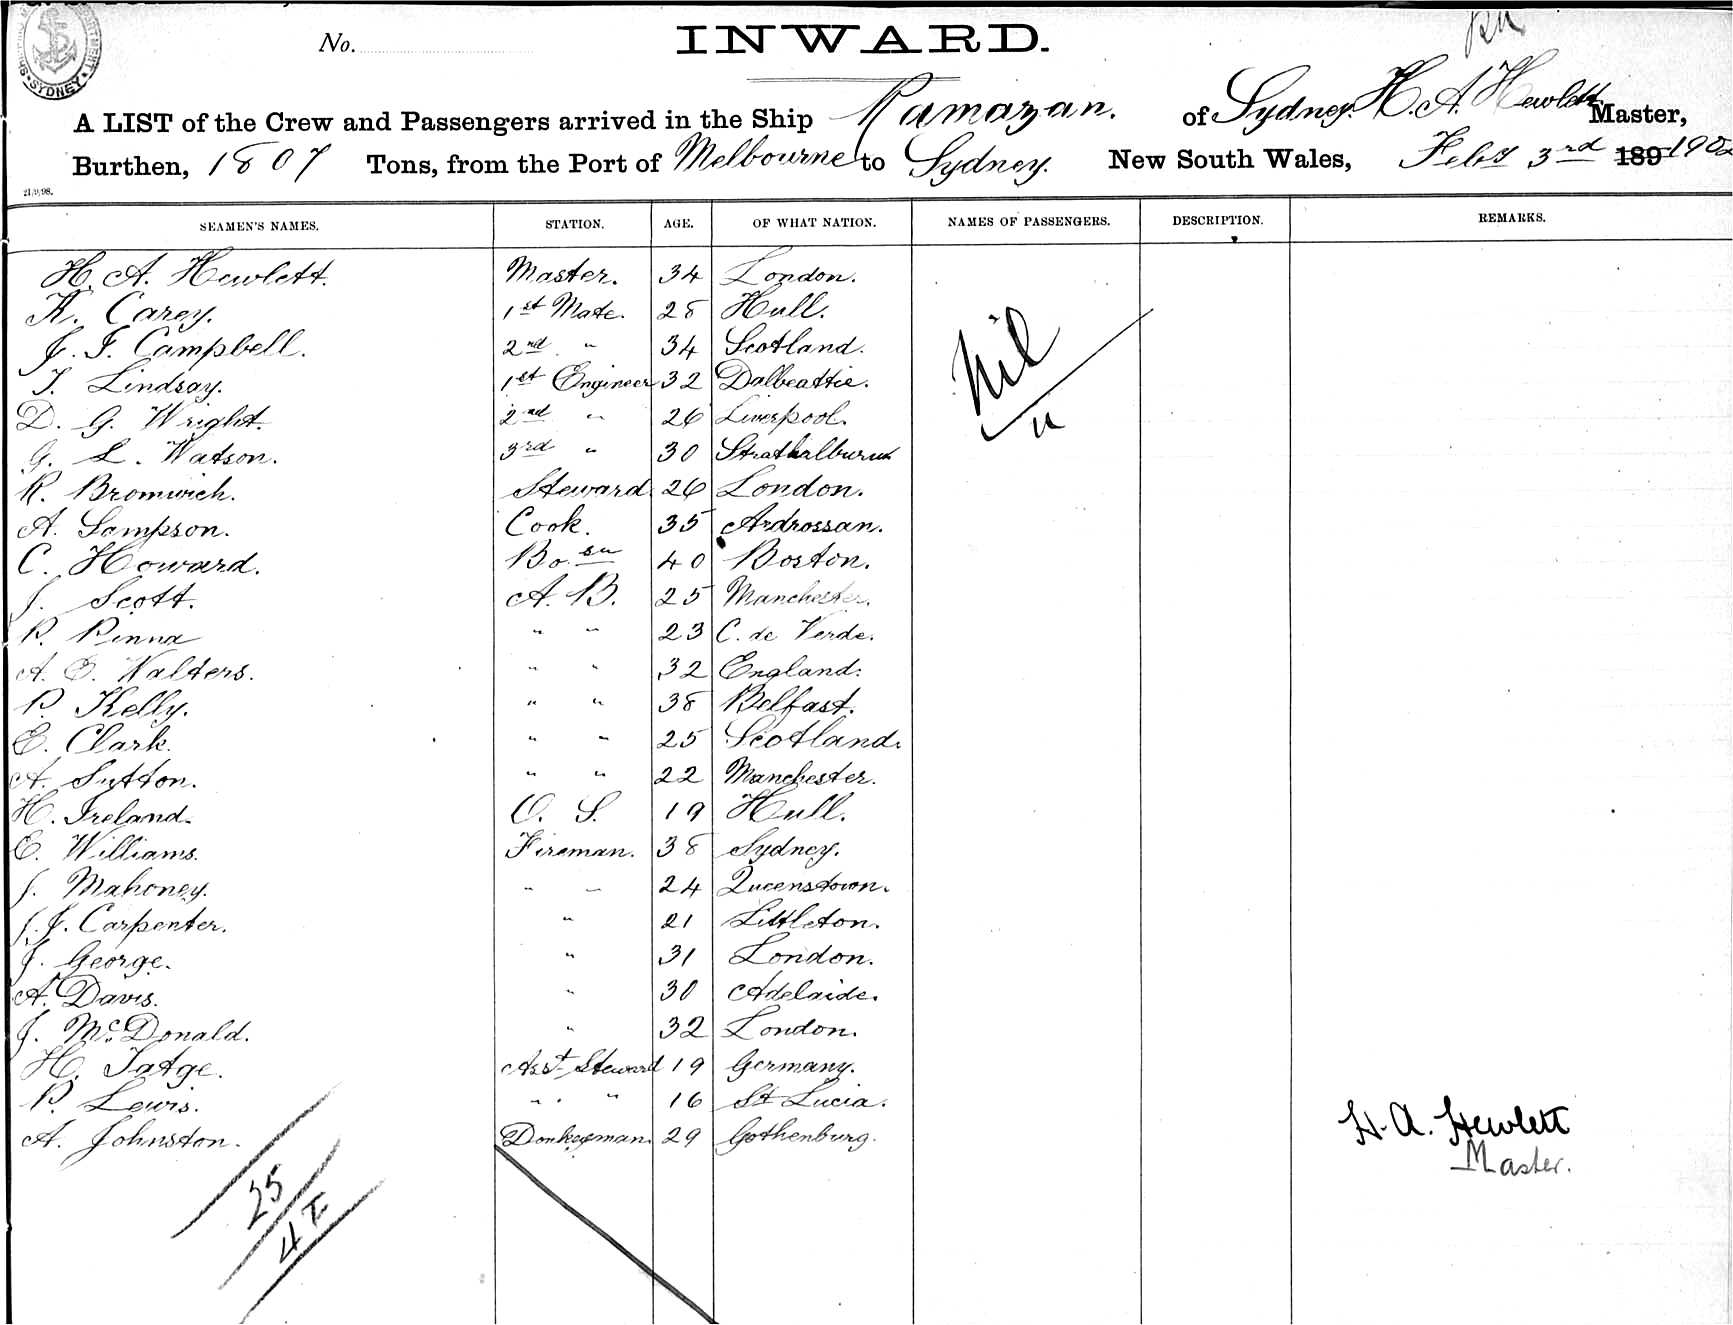 SYDNEY
No.
INWARD.
A LIST of the Crew and Passengers arrived in the Ship Ramazan. of Sydney. H. A. Hewlett Master,
Burthen, 1807 Tons, from the Port of Melbourne to Sydney. New South Wales, Feby 3rd 189 190
21/9/98.
SEAMEN'S NAMES. STATION. AGE. OF WHAT NATION. NAMES OF PASSENGERS. DESCRIPTION. REMARKS.
H. A. Hewlett. Master. 34 London.
K. Carey. 1st Mate. 28 Hull.
J. J. Campbell. 2nd " 34 Scotland.
J. Lindsay. 1st Engineer 32 Dalbeattie.
Nil
D. G. Wright. 2nd " 26 Liverpool.
G. L. Watson. 3rd " 30
R. Bromwich. Steward. 26 London.
A. Sampson. Cook. 35 Ardrossan.
C. Howard. Bosn 40 Boston.
J. Scott. A. B. 25 Manchester.
P. Pinna " " 23 C. de Verde.
A. E. Walters. " " 32 England.
P. Kelly. " " 38 Belfast.
E. Clark. " " 25 Scotland.
A. Sutton. " " 22 Manchester.
H. Ireland. O. S. 19 Hull.
E. Williams. Fireman. 38 Sydney.
J. Mahoney. " " 24 Queenstown.
J. J. Carpenter. " 21 Littleton.
J. George. " 31 London.
A. Davis. " 30 Adelaide.
J. McDonald. " 32 London.
H. Tatge. Asst Steward 19 Germany.
P. Lewis. " " 16 St Lucia.
A. Johnston. Donkeyman. 29 Gothenburg.
H. A. Hewlett
Master.
25
4